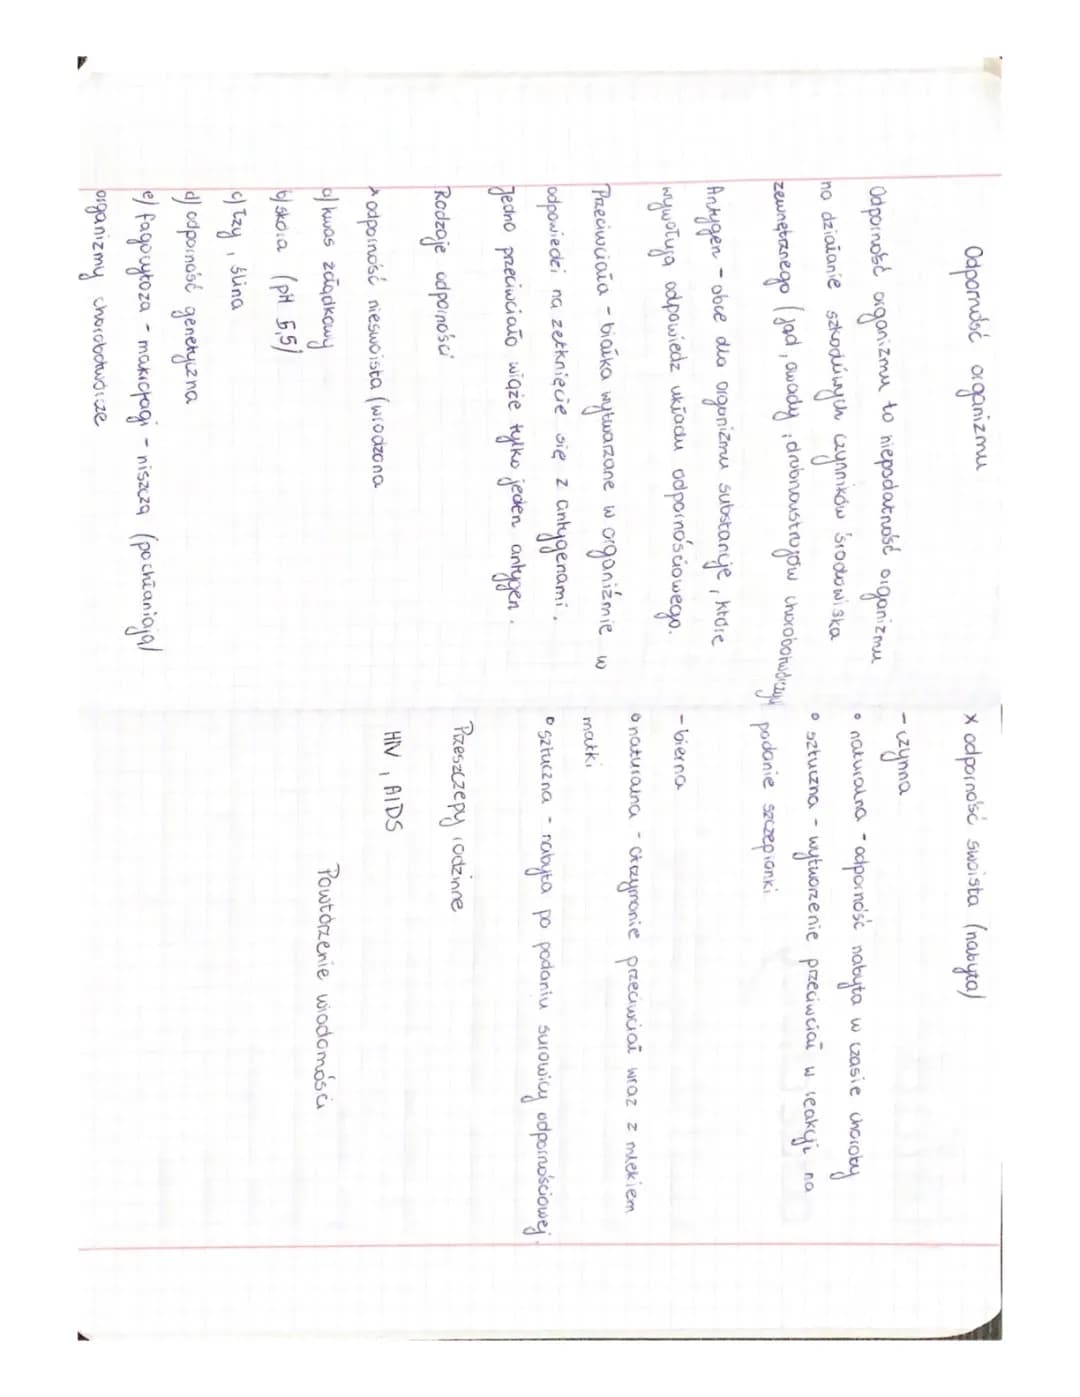 Odporność organizmu
Odporność organizmu to niepodatność organizmu
na działanie szkodliwych czynników środowiska
zewnętrznego (jad, owady, drobnoustrojów chorobotwórczych)
Antygen - obce dla organizmu substancje, które
wywołują odpowiedz układu odpornościowego.
Przeciwciała - białka wytwarzane w organiźmie w
odpowiedzi na zetknięcie się z antygenami.
Jedno przeciwciało wiąże tylko jeden antygen.
Rodzaje odporności
x odporność nieswoista (wrodzona
a) kwas żołądkowy
b) skóra (pH 5,5)
c) łzy, ślina
d) odporność genetyczna
e) fagocytoza - makrofagi - niszczą (pochłaniają)
organizmy chorobotwórcze
x odporność swoista (nabyta)
- czynna
• naturalna - odporność nabyta w czasie choroby
• sztuczna - wytworzenie przeciwciał w reakcji na
podanie szczepionki
- bierna
• naturalna - otrzymanie przeciwciał wraz z mlekiem
matki
• sztuczna - nabyta po podaniu surowicy odpornościowej.
Przeszczepy rodzinne
HIV, AIDS
Powtórzenie wiadomości